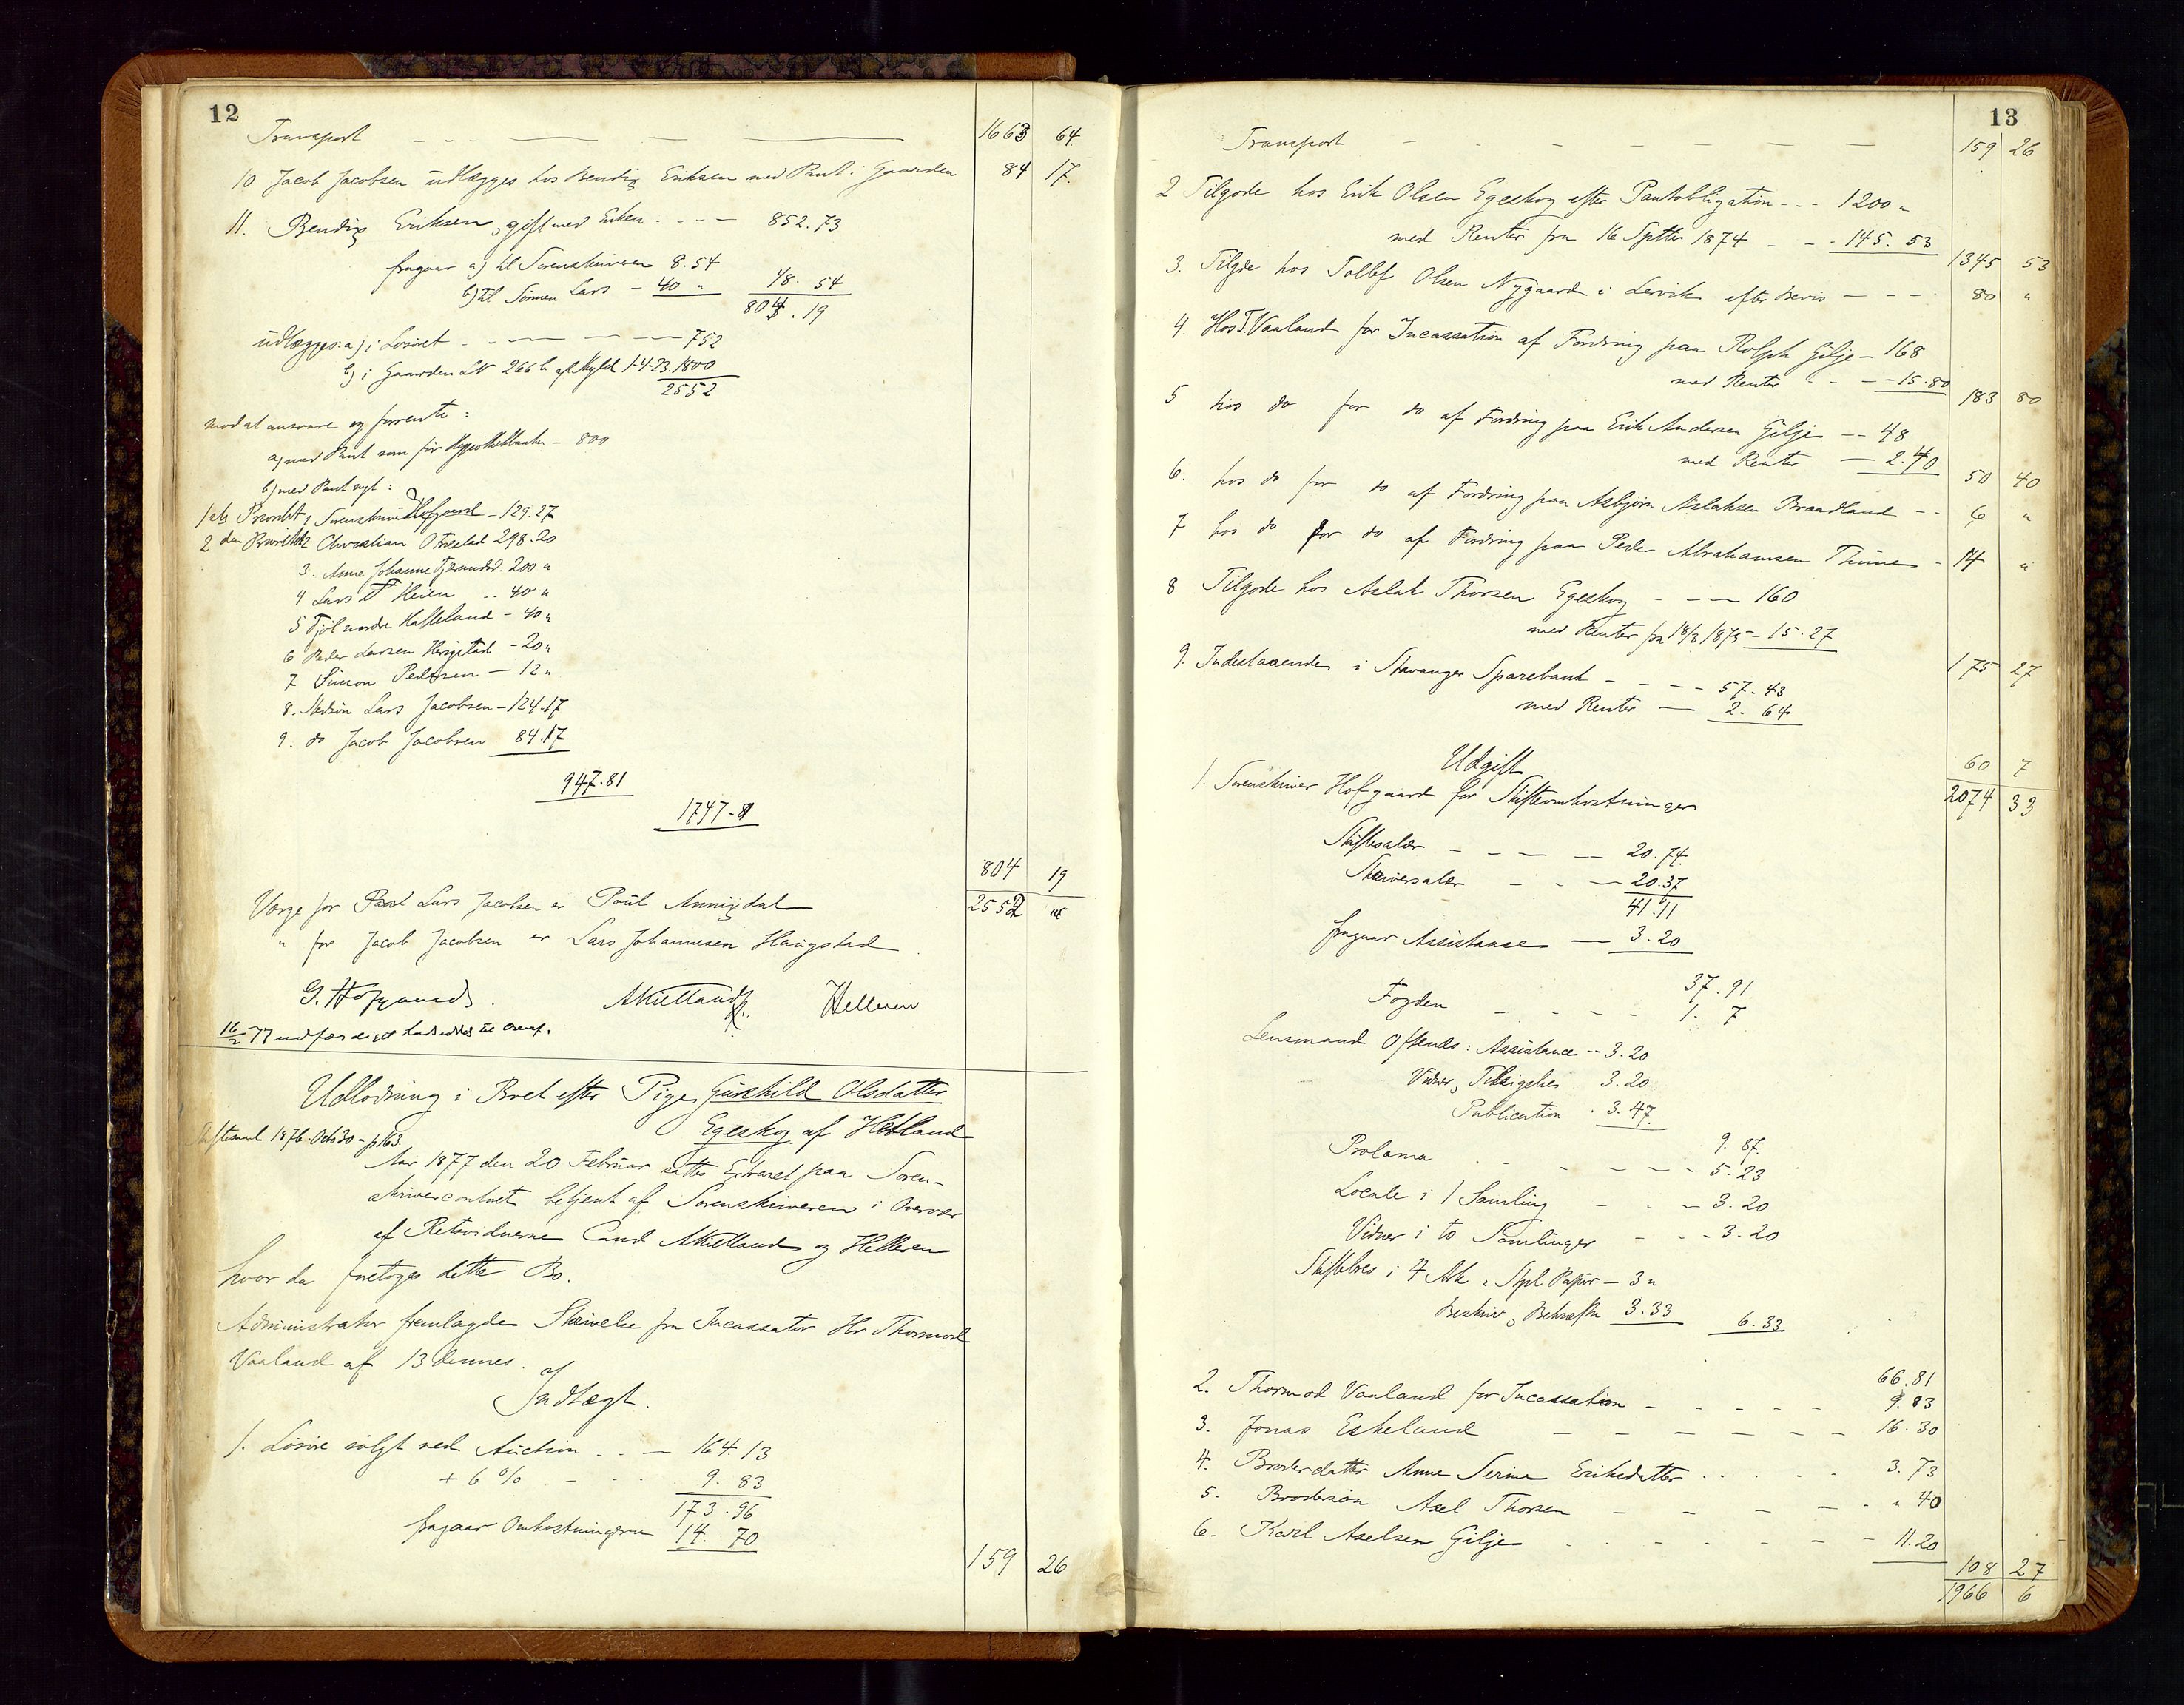 12
Transport - - - — — — 1663 64
10 Jacob Jacobsen udlægges hos Bendix Eriksen med Pant i Gaarden 84 17.
11. Bendix Eriksen, gift med Enken . - - — 852.73
fragaar a) til Sorenskriveren 8.54
b) til Sønnen Lars - 40 " 48. 54
804.19
udlægges: a) i Løsøret - - — — — 752
b) i Gaarden LN 266 b af Skyld 1-4-23. 1800
2552
mod at ansvare og forrente:
a) med Pant som før Hypothekbanken - 800
b) med Pant nyt:
1ste Prioritet, Sorenskriver Hofgaard - 129.27
2 den Prioritet 2 Christian O Tveslad 298.20
3. Anne Johanne Tjerandsd. 200 "
4 Lars T Heien .. 40 "
5 Tjöl nordre Haffeland - 40 "
6 Peder Larsen Haugstad - 20 "
7 Simon Pedersen — 12 "
8. Stedsøn Lars Jacobsen - 124.17
9. do Jacob Jacobsen 84.17
947.81
1747-81
804 19
Værge for Lars Jacobsen er Poul Annigdal 2552 "
" for Jacob Jacobsen er Lars Johannesen Haugstad
G. Hofgaard. AKielland Helleren
16/2 77 udfærdiget
Udlodning i Boet efter Pige Gunhild Olsdatter
Egeskog af Hetland
Skiftesaml 1876. Octb 30 - p 163.
Aar 1877 den 20 Februar sattes Extraret paa Soren-
skrivercontoret betjent af Sorenskriveren i Overvær
af Retsvidnerne Cand AKielland og Helleren
hvor da foretoges dette Bo.
Administrator fremlagde Skrivelse fra Incassator Hr Thormod
Vaaland af 13 dennes.
Indtægt.
1. Løsøre solgt ved Auction . . — 164.13
+ 6 % - . . 9. 83
173.96
fragaar Omkostningerne 14. 70
159 26
13
Transport - - - - — — — 159 26
2 Tilgode hos Erik Olsen Egeskog efter Pantobligation - - - 1200 "
med Renter fra 16 Septbr 1874 - - - 145. 53
1345 53
3. Tilgode hos Tollef Olsen Nygaard i Lervik efter Bevis — - - - 80 "
4. Hos T. Vaaland for Incassation af Fordring paa Rolph Gilje - 168
med Renter - - - 15.80
183 80
5 hos do for do af Fordring paa Erik Andersen Gilje -- 48
med Renter — 2.40
50 40
6. hos do for do af Fordring paa Asbjørn Aslaksen Braadland - - 6 "
7 hos do for do af Fordring paa Peder Abrahamsen Thime - 14 "
8 Tilgode hos Aslak Thorsen Egeskog - - — 160
med Renter fra 18/3 1875 - 15.27
175 27
9. Indestaaende i Stavanger Sparebank - - - - 57.43
med Renter — 2. 64
60 7
2074 33
Udgift
1. Sorenskriver Hofgaard for Skifteomkostninger
Skiftesalær - - — — 20.74
Skriversalær - - — 20.37
41.11
fragaar Assistance — 3.20
37.91
Fogden - - - - 1. 7
Lensmand Oftends: Assistance -- 3.20
Vidner, Tilsigelse 3.20
Publication . 3.47.
9. 87.
Proclama . - - - - - - 5.23
Locale i 1 Samling - - — 3.20
Vidner i to Samlinger - - - 3.20
Skiftebrev i 4 Ark: Stpl Papir — 3 "
Beskriv, Bekræftn 3.33 6.33
66.81
2. Thormod Vaaland for Incassation - - - - - 9.83
3. Jonas Eskeland - - - - - - 16.30
4. Broderdatter Anne Serine Eriksdatter . . . . 3.73
5. Brodersøn Axel Thorsen - - - - - . " 40
6. Karl Axelsen Gilje . . - . - - - 11.20
108 27
1966 6